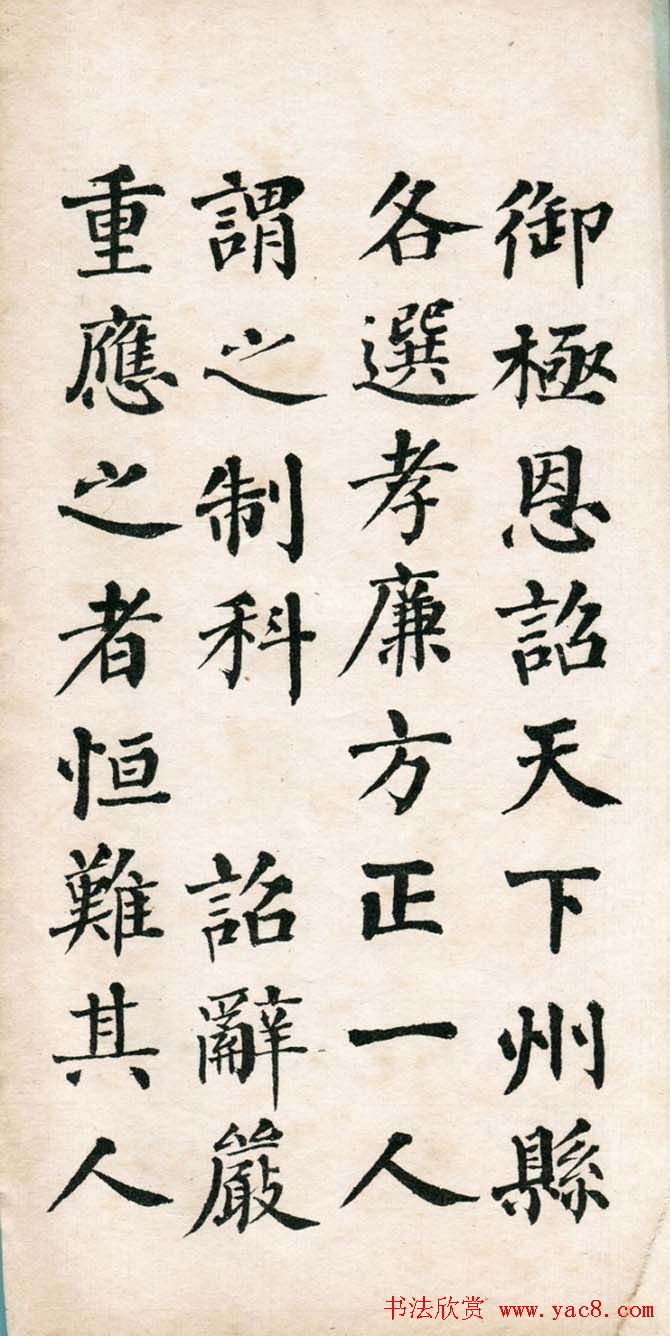 御極恩詔天下州縣
各選孝廉方正一人
謂之制科　詔辭嚴
重應之者恒難其人
书法欣赏 www.yac8.com